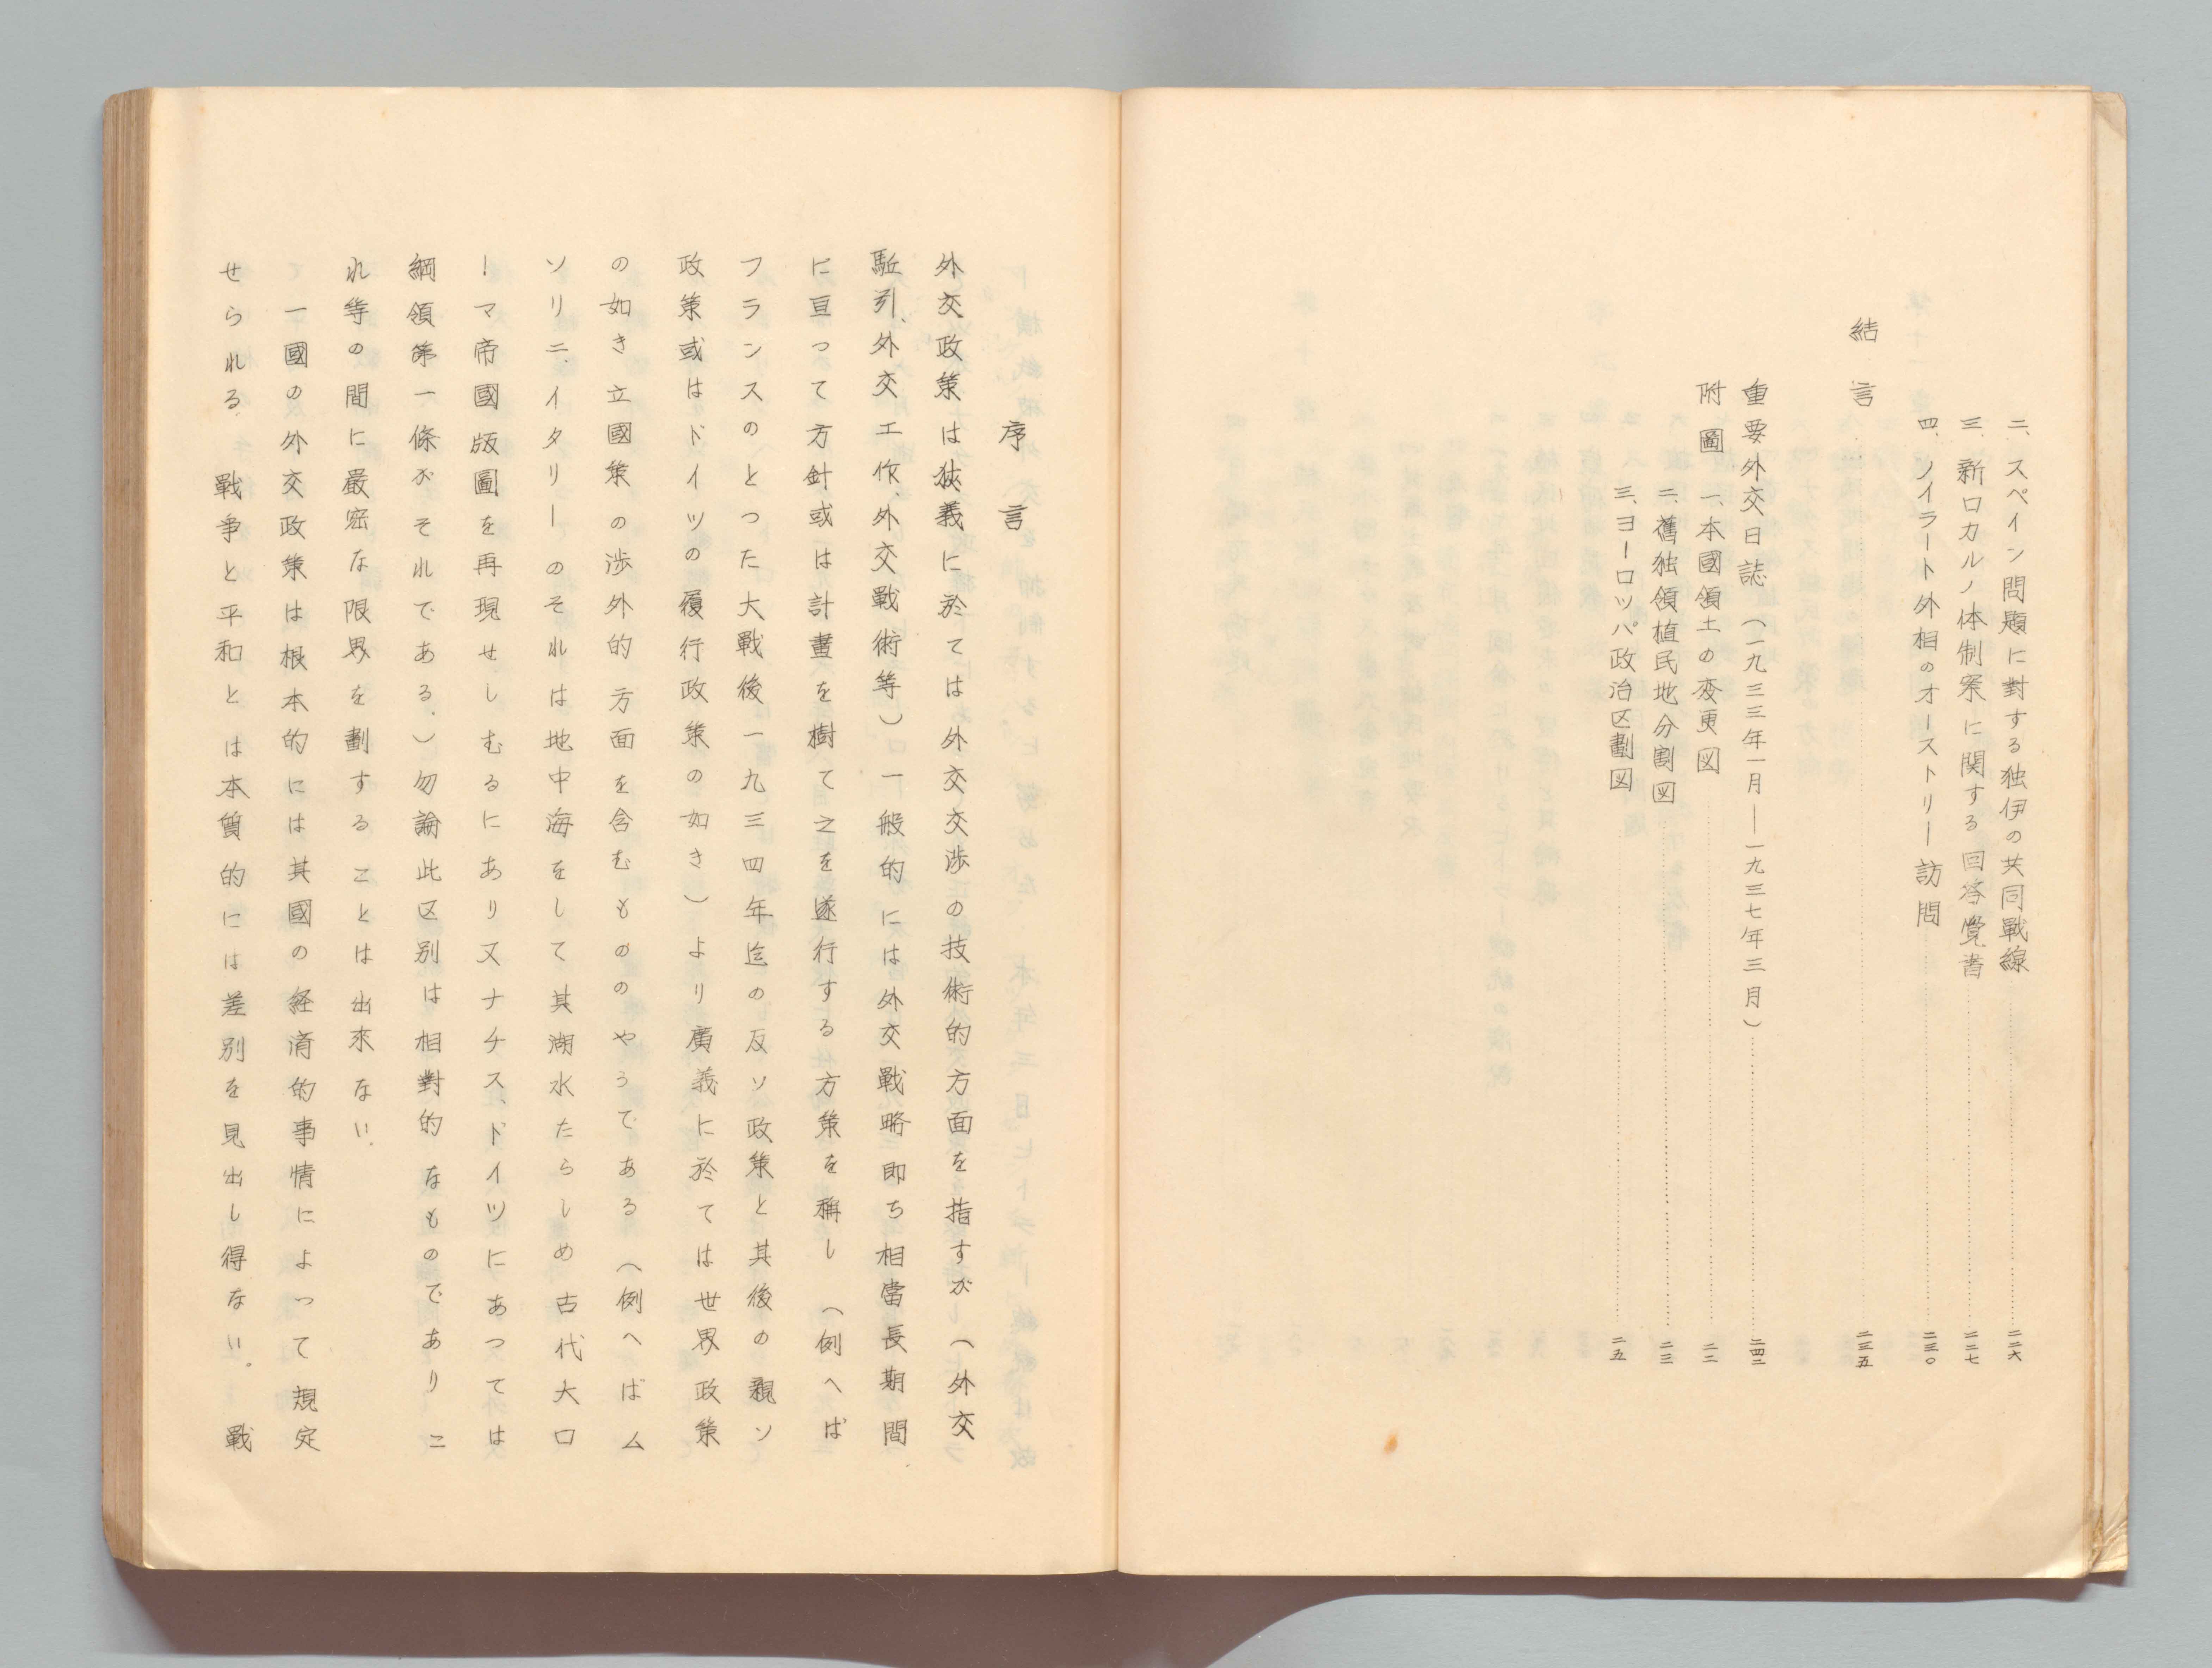 二、スペイン問題に對する独伊の共同戰線……二二六
三、新ロカルノ体制案に関する回答覺書……二二七
四、ノイラート外相のオーストリー訪問……二三〇
結言……二三五
重要外交日誌（一九三三年一月――一九三七年三月）……二四二
附圖 一、本國領土の変更図……二二
二、舊独領植民地分割図……二三
三、ヨーロッパ政治区劃図……二五
序言
外交政策は狭義に於ては外交交渉の技術的方面を指すが（外交
駈引、外交工作、外交戰術等）一般的には外交戰略即ち相當長期間
に亘って方針或は計畫を樹て之を遂行する方策を稱し（例へば
フランスのとつた大戰後一九三四年迄の反ソ政策と其後の親ソ
政策或はドイツの履行政策の如き）より廣義に於ては世界政策
の如き立國策の渉外的方面を含むもののやうである（例へばム
ソリニ、イタリーのそれは地中海をして其湖水たらしめ古代大ロ
ーマ帝國版圖を再現せしむるにあり又ナチス、ドイツにあつては
綱領第一條がそれである、）勿論此区別は相對的なものでありこ
れ等の間に嚴密な限界を劃することは出來ない、
一國の外交政策は根本的には其國の経済的事情によって規定
せられる、戰争と平和とは本質的には差別を見出し得ない。戰